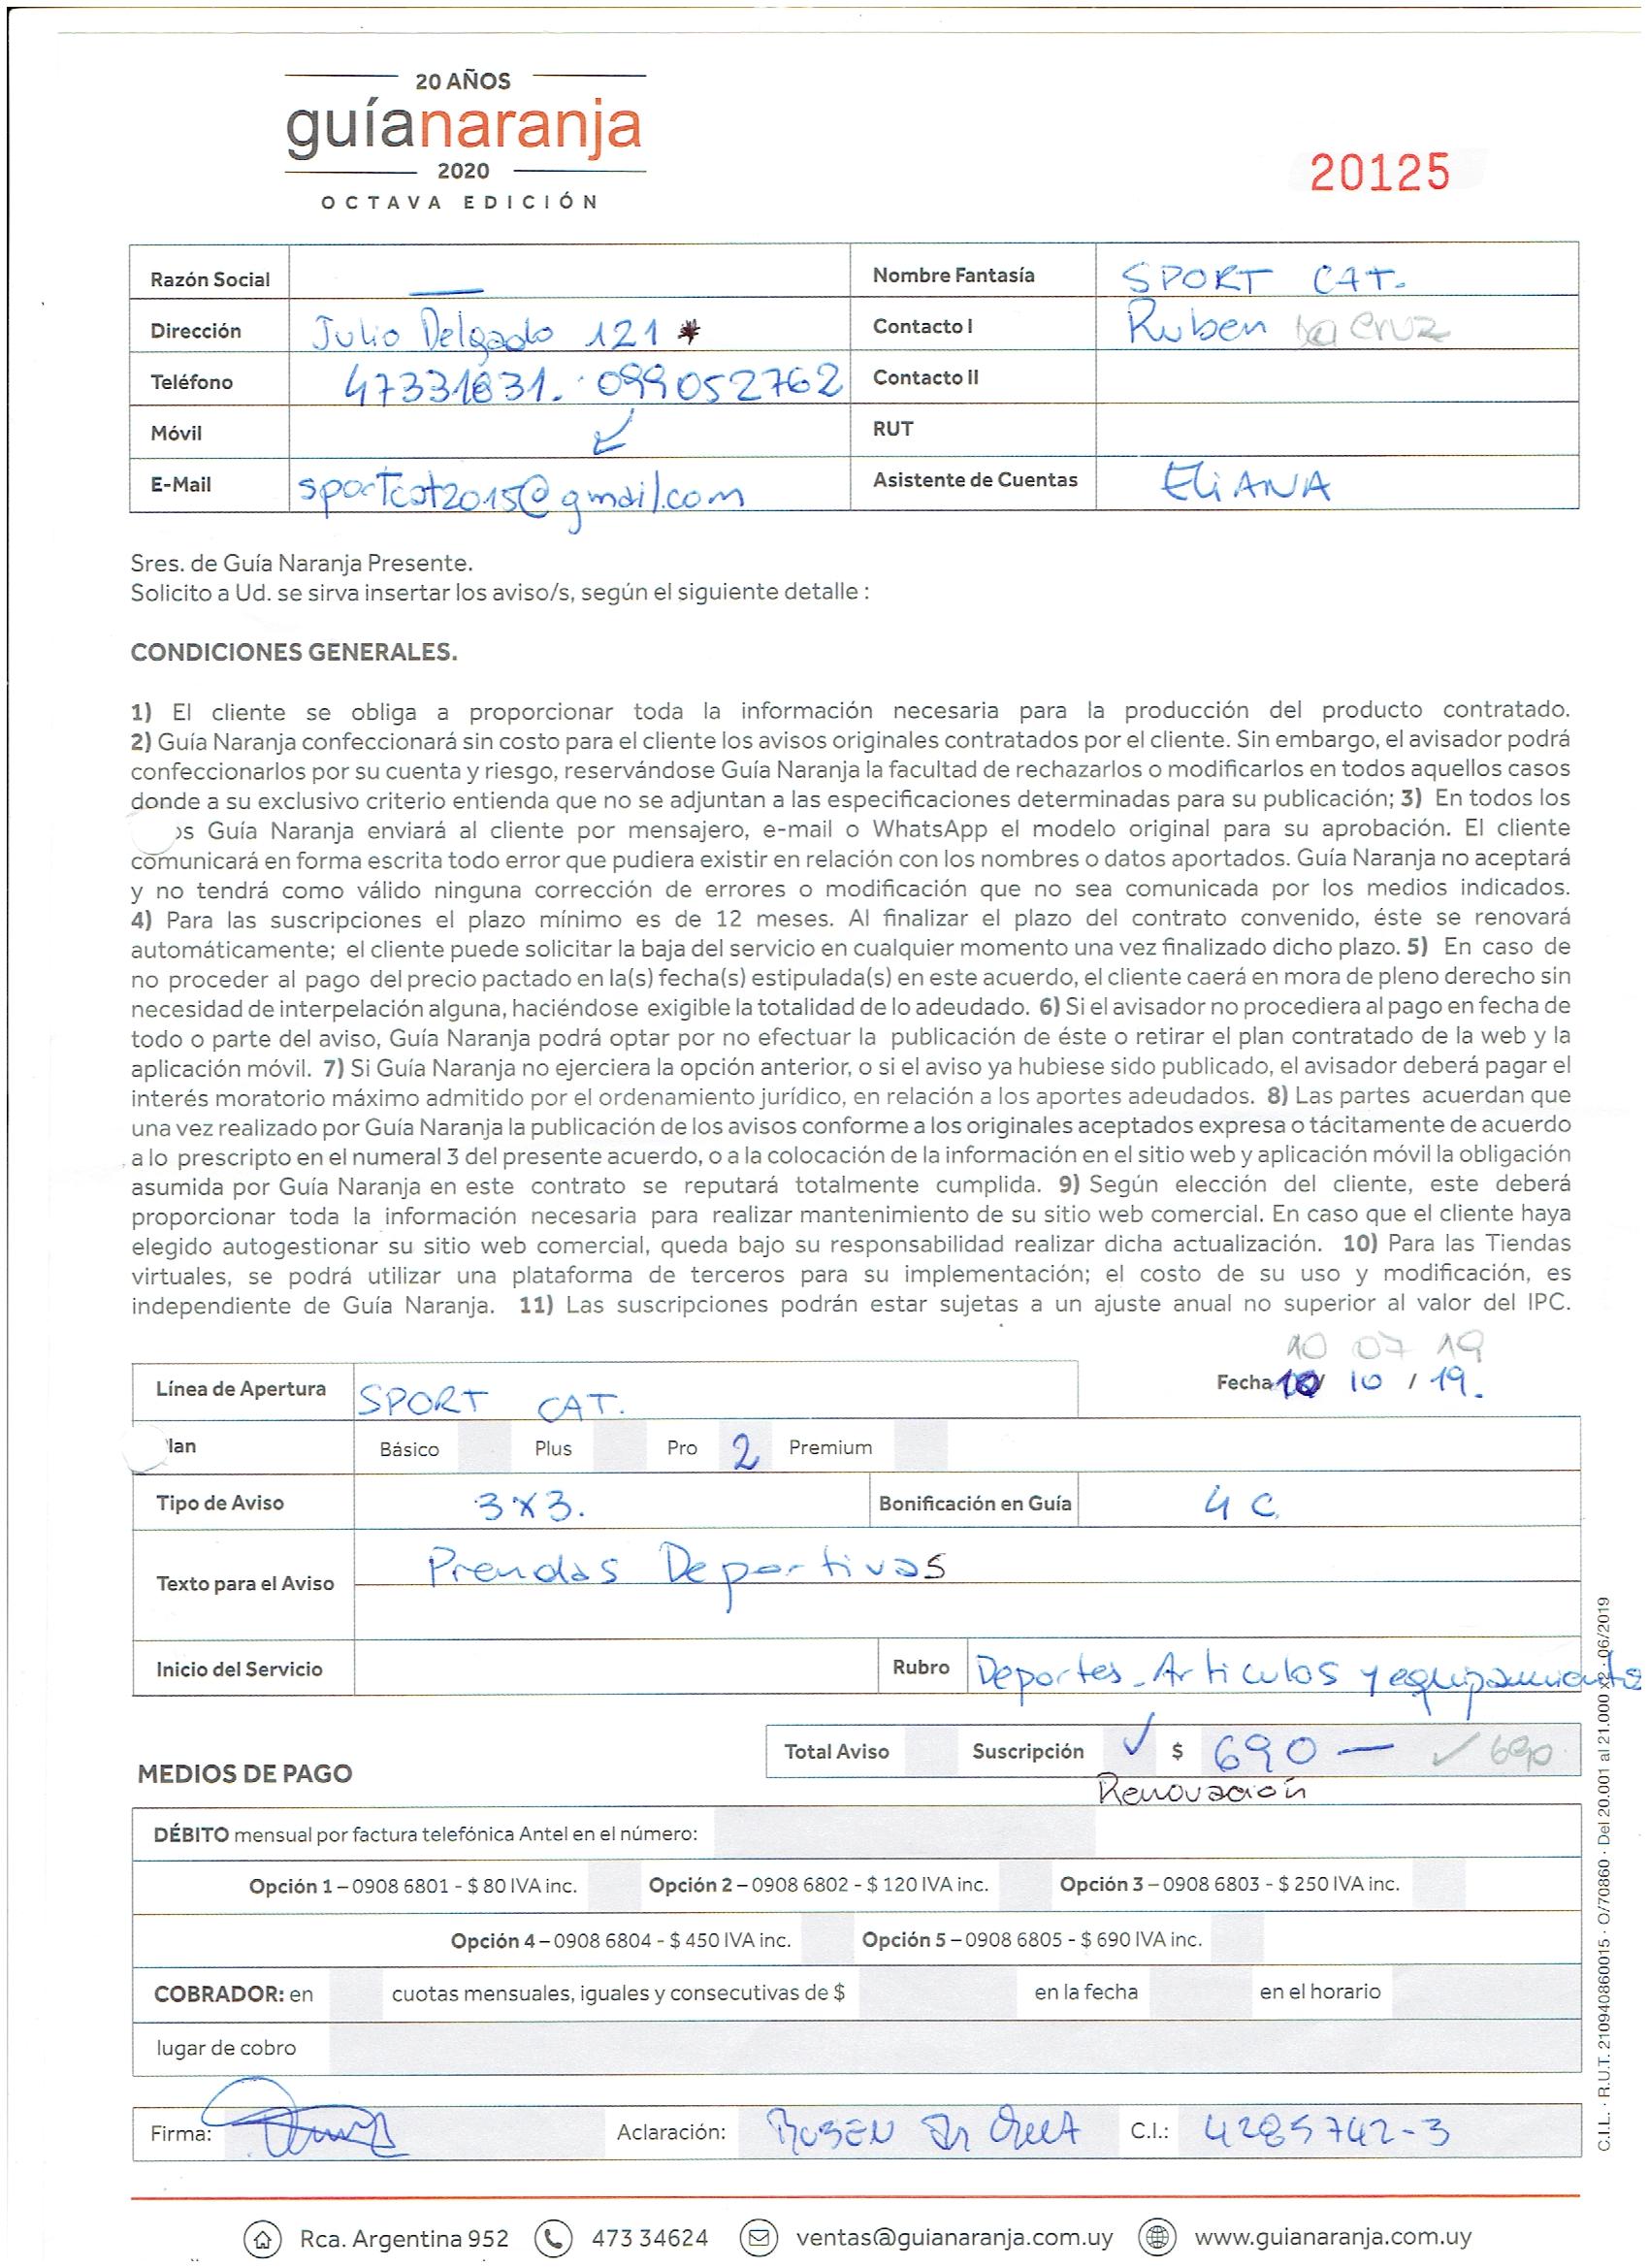 20 AÑOS
guíanaranja
2020
OCTAVA EDICIÓN
20125
Razón Social — Nombre Fantasía SPORT CAT.
Dirección Julio Delgado 121 * Contacto I Ruben Da Cruz
Teléfono 47331831. 099052762 Contacto II
Móvil RUT
E-Mail sportcat2015@gmail.com Asistente de Cuentas ELIANA
Sres. de Guía Naranja Presente.
Solicito a Ud. se sirva insertar los aviso/s, según el siguiente detalle :
CONDICIONES GENERALES.
1) El cliente se obliga a proporcionar toda la información necesaria para la producción del producto contratado.
2) Guía Naranja confeccionará sin costo para el cliente los avisos originales contratados por el cliente. Sin embargo, el avisador podrá
confeccionarlos por su cuenta y riesgo, reservándose Guía Naranja la facultad de rechazarlos o modificarlos en todos aquellos casos
donde a su exclusivo criterio entienda que no se adjuntan a las especificaciones determinadas para su publicación; 3) En todos los
os Guía Naranja enviará al cliente por mensajero, e-mail o WhatsApp el modelo original para su aprobación. El cliente
comunicará en forma escrita todo error que pudiera existir en relación con los nombres o datos aportados. Guía Naranja no aceptará
y no tendrá como válido ninguna corrección de errores o modificación que no sea comunicada por los medios indicados.
4) Para las suscripciones el plazo mínimo es de 12 meses. Al finalizar el plazo del contrato convenido, éste se renovará
automáticamente; el cliente puede solicitar la baja del servicio en cualquier momento una vez finalizado dicho plazo. 5) En caso de
no proceder al pago del precio pactado en la(s) fecha(s) estipulada(s) en este acuerdo, el cliente caerá en mora de pleno derecho sin
necesidad de interpelación alguna, haciéndose exigible la totalidad de lo adeudado. 6) Si el avisador no procediera al pago en fecha de
todo o parte del aviso, Guía Naranja podrá optar por no efectuar la publicación de éste o retirar el plan contratado de la web y la
aplicación móvil. 7) Si Guía Naranja no ejerciera la opción anterior, o si el aviso ya hubiese sido publicado, el avisador deberá pagar el
interés moratorio máximo admitido por el ordenamiento jurídico, en relación a los aportes adeudados. 8) Las partes acuerdan que
una vez realizado por Guía Naranja la publicación de los avisos conforme a los originales aceptados expresa o tácitamente de acuerdo
a lo prescripto en el numeral 3 del presente acuerdo, o a la colocación de la información en el sitio web y aplicación móvil la obligación
asumida por Guía Naranja en este contrato se reputará totalmente cumplida. 9) Según elección del cliente, este deberá
proporcionar toda la información necesaria para realizar mantenimiento de su sitio web comercial. En caso que el cliente haya
elegido autogestionar su sitio web comercial, queda bajo su responsabilidad realizar dicha actualización. 10) Para las Tiendas
virtuales, se podrá utilizar una plataforma de terceros para su implementación; el costo de su uso y modificación, es
independiente de Guía Naranja. 11) Las suscripciones podrán estar sujetas a un ajuste anual no superior al valor del IPC.
10 07 19
Línea de Apertura SPORT CAT. Fecha 10/ 10 / 19.
lan Básico Plus Pro 2 Premium
Tipo de Aviso 3x3. Bonificación en Guía 4 C
Texto para el Aviso Prendas Deportivas
Inicio del Servicio Rubro Deportes - Articulos y equipamientos
Total Aviso Suscripción ✓ $ 690 — ✓ 690
Renovación
MEDIOS DE PAGO
DÉBITO mensual por factura telefónica Antel en el número:
Opción 1 – 0908 6801 - $ 80 IVA inc. Opción 2 – 0908 6802 - $ 120 IVA inc. Opción 3 – 0908 6803 - $ 250 IVA inc.
Opción 4 – 0908 6804 - $ 450 IVA inc. Opción 5 – 0908 6805 - $ 690 IVA inc.
COBRADOR: en cuotas mensuales, iguales y consecutivas de $ en la fecha en el horario
lugar de cobro
Firma: Aclaración: RUBEN DA CRUZ C.I.: 4285742-3
Rca. Argentina 952 473 34624 ventas@guianaranja.com.uy www.guianaranja.com.uy
C.I.L. · R.U.T. 210940860015 · O/70860 · Del 20.001 al 21.000 x 2 · 06/2019